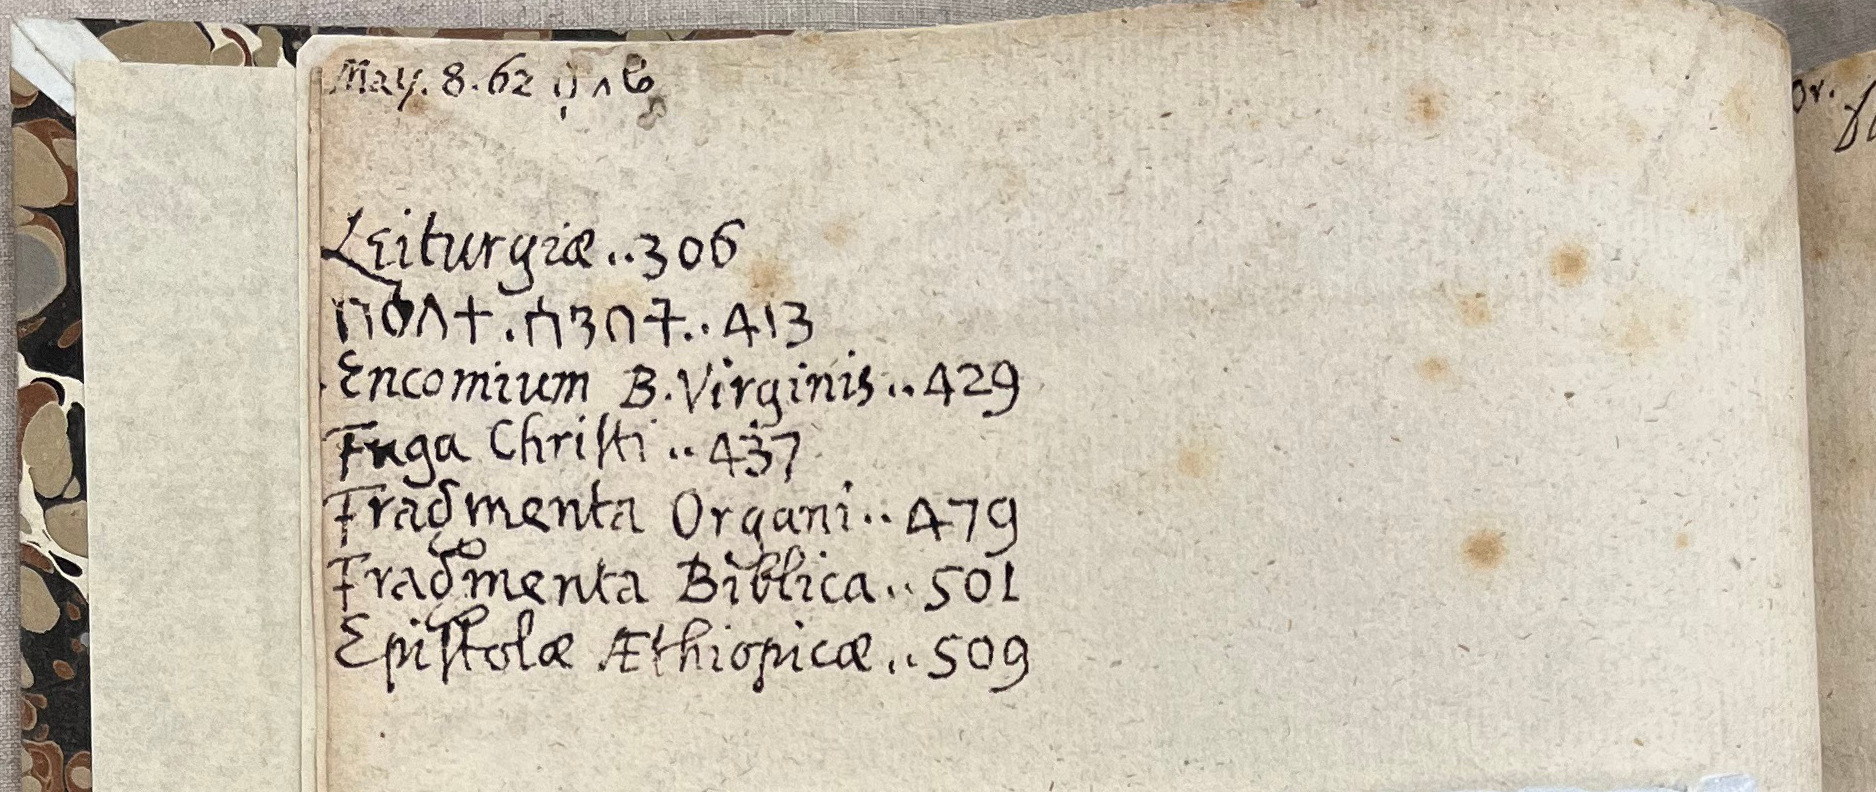 May. 8. 62
Leiturgiæ..306
በዕለተ.ሐዳስ..413
Encomium B. Virginis..429
Fuga Christi..437
Fragmenta Organi..479
Fragmenta Biblica..501
Epistolæ Æthiopicæ..509
Or.